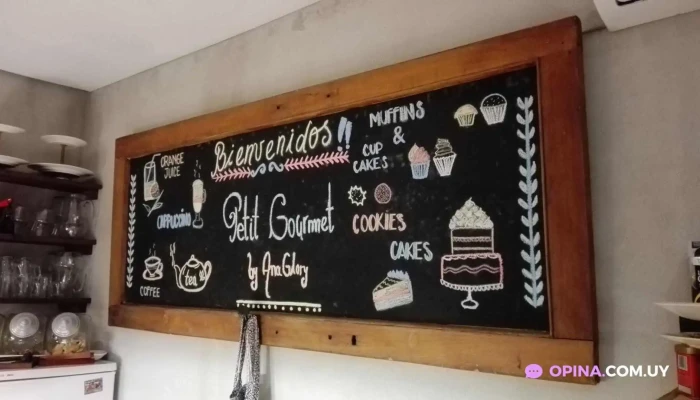 Bienvenidos!!
ORANGE
JUICE
CAPPUCCINO
tea
COFFEE
Petit Gourmet
by Ana Glory
MUFFINS
&
CUP
CAKES
COOKIES
CAKES
OPINA.COM.UY